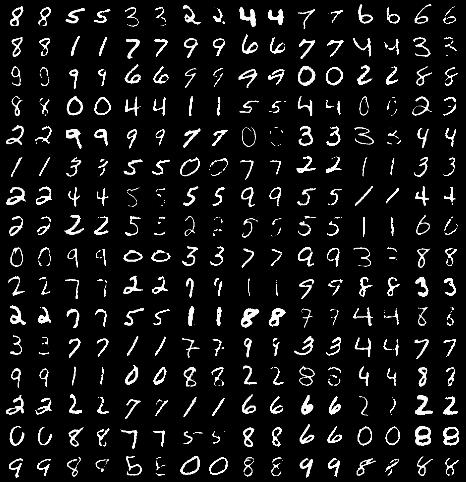 8 8 5 5 3 3 2 2 4 4 7 7 6 6 6 6
8 8 1 1 7 7 9 9 6 6 7 7 4 4 3 3
9 0 9 9 6 6 9 9 9 9 0 0 2 2 8 8
8 8 0 0 4 4 1 1 5 5 4 4 0 0 2 2
2 2 9 9 9 9 7 7 0 0 3 3 3 3 4 4
1 1 3 3 5 5 0 0 7 7 2 2 1 1 3 3
2 2 4 4 5 5 5 5 9 9 5 5 1 1 4 4
2 2 2 2 5 5 2 2 5 5 5 5 1 1 6 6
0 0 9 9 0 0 3 3 7 7 9 9 3 3 8 8
2 2 7 7 2 2 9 9 1 1 9 9 8 8 3 3
2 2 7 7 5 5 1 1 8 8 7 7 4 4 8 8
3 3 7 7 1 1 7 7 9 9 3 3 4 4 7 7
9 9 1 1 0 0 8 8 2 2 8 8 4 4 8 8
2 2 2 2 7 7 1 1 6 6 6 6 2 2 2 2
0 0 8 8 7 7 5 5 8 8 6 6 0 0 8 8
9 9 8 8 5 5 0 0 8 8 9 9 8 8 8 8